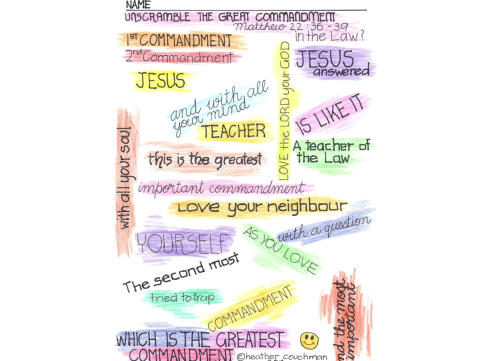 NAME
UNSCRAMBLE THE GREAT COMMANDMENT
Matthew 22:36-39
1ST COMMANDMENT
in the Law?
2nd Commandment
JESUS
answered
JESUS
and with all
your mind
LOVE the LORD your GOD
IS LIKE IT
TEACHER
A teacher of
the Law
with all your soul
this is the greatest
important commandment
LOVE your neighbour
with a question
YOURSELF
AS YOU LOVE
The second most
tried to trap
COMMANDMENT
and the most
important
WHICH IS THE GREATEST
COMMANDMENT
©heather_couchman